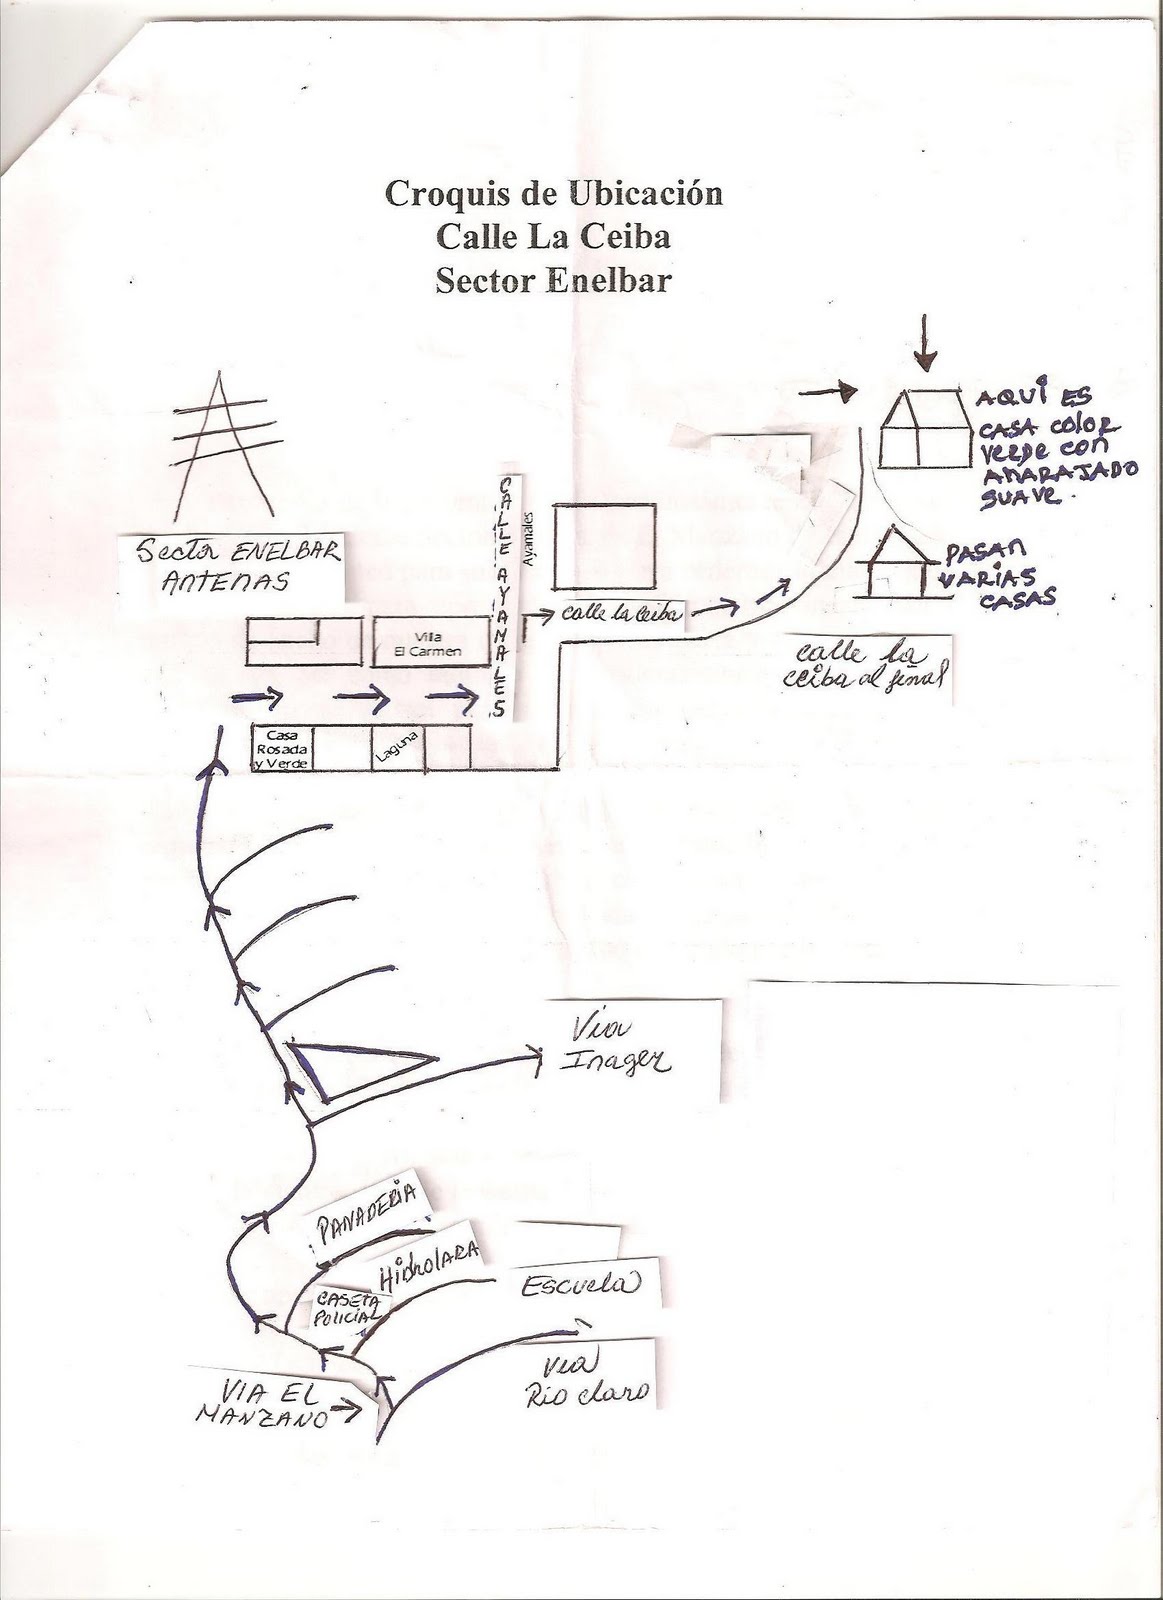 Croquis de Ubicación
Calle La Ceiba
Sector Enelbar
AQUÍ ES
CASA COLOR
VERDE CON
ANARAJADO
SUAVE.
PASAN
VARIAS
CASAS
Sector ENELBAR
ANTENAS
CALLE AYAMALES
Ayamales
calle la ceiba
calle la
ceiba al final
Villa
El Carmen
Casa
Rosada
y Verde
Laguna
Via
Inager
PANADERIA
HidrolARA
CASETA
POLICIAL
Escuela
Via
Rio claro
VIA EL
MANZANO